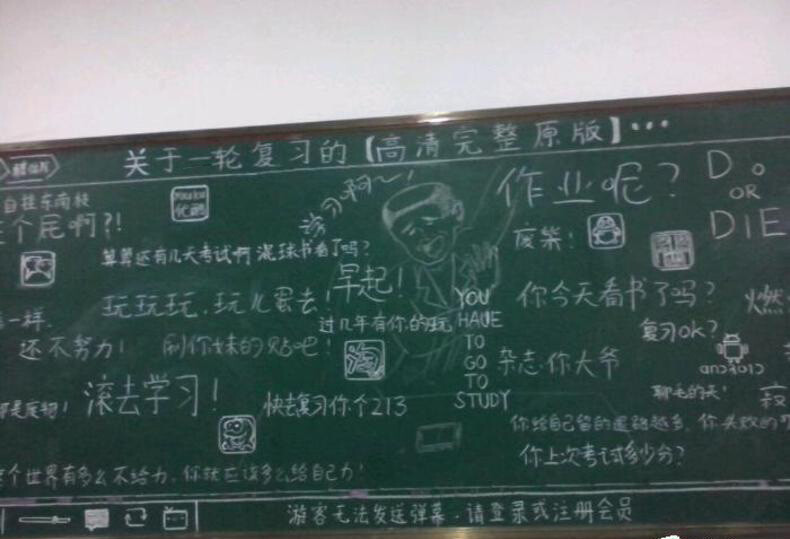 关于一轮复习的【高清完整原版】…
自挂东南枝
个屁啊?!
Youku
优酷
算算还有几天考试啊 混球书看了吗?
复习啊~!
作业呢?
DO
OR
DIE
废柴!
早起!
玩玩玩,玩儿蛋去!
过几年有你的玩
YOU
HAVE
TO
GO
TO
STUDY
你今天看书了吗?
复习ok?
android
一样.
还不努力!
刷你妹的贴吧!
淘
杂志·你大爷
聊毛的天!
都是废物!
滚去学习!
快去复习你个213
你给自己留的退路越多,你失败的
你上次考试多少分?
个世界有多么不给力,你就应该多么给自己力!
游客无法发送弹幕,请登录或注册会员